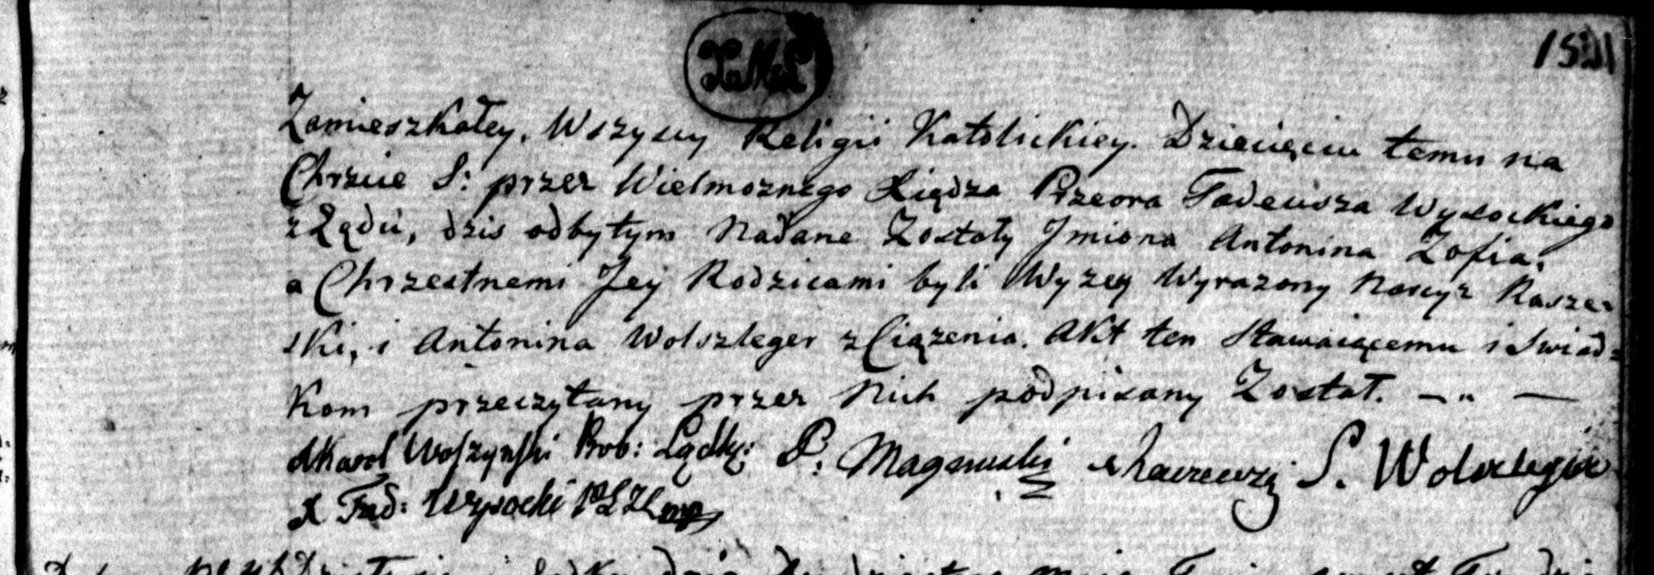 Zamieszkałey. Wszyscy Religii Katolickiey. Dziecięciu temu na
Chrzcie S: przez Wielmoznego Xiędza Przeora Tadeusza Wysockiego
z Lądu, dzis odbytym Nadane Zostały Jmiona Antonina Zofia,
a Chrzestnemi Jey Rodzicami byli Wyzey Wyrazony Narcyz Kasze-
ski, i Antonina Wolszleger z Ciązenia. Akt ten Stawaiącemu i Swiad=
kom przeczytany przez Nich podpisany Został. — „ —
X Karol Woszynski Prob: Lądk: P. Magnuski S. Wolszlegier
X Tad: Wysocki